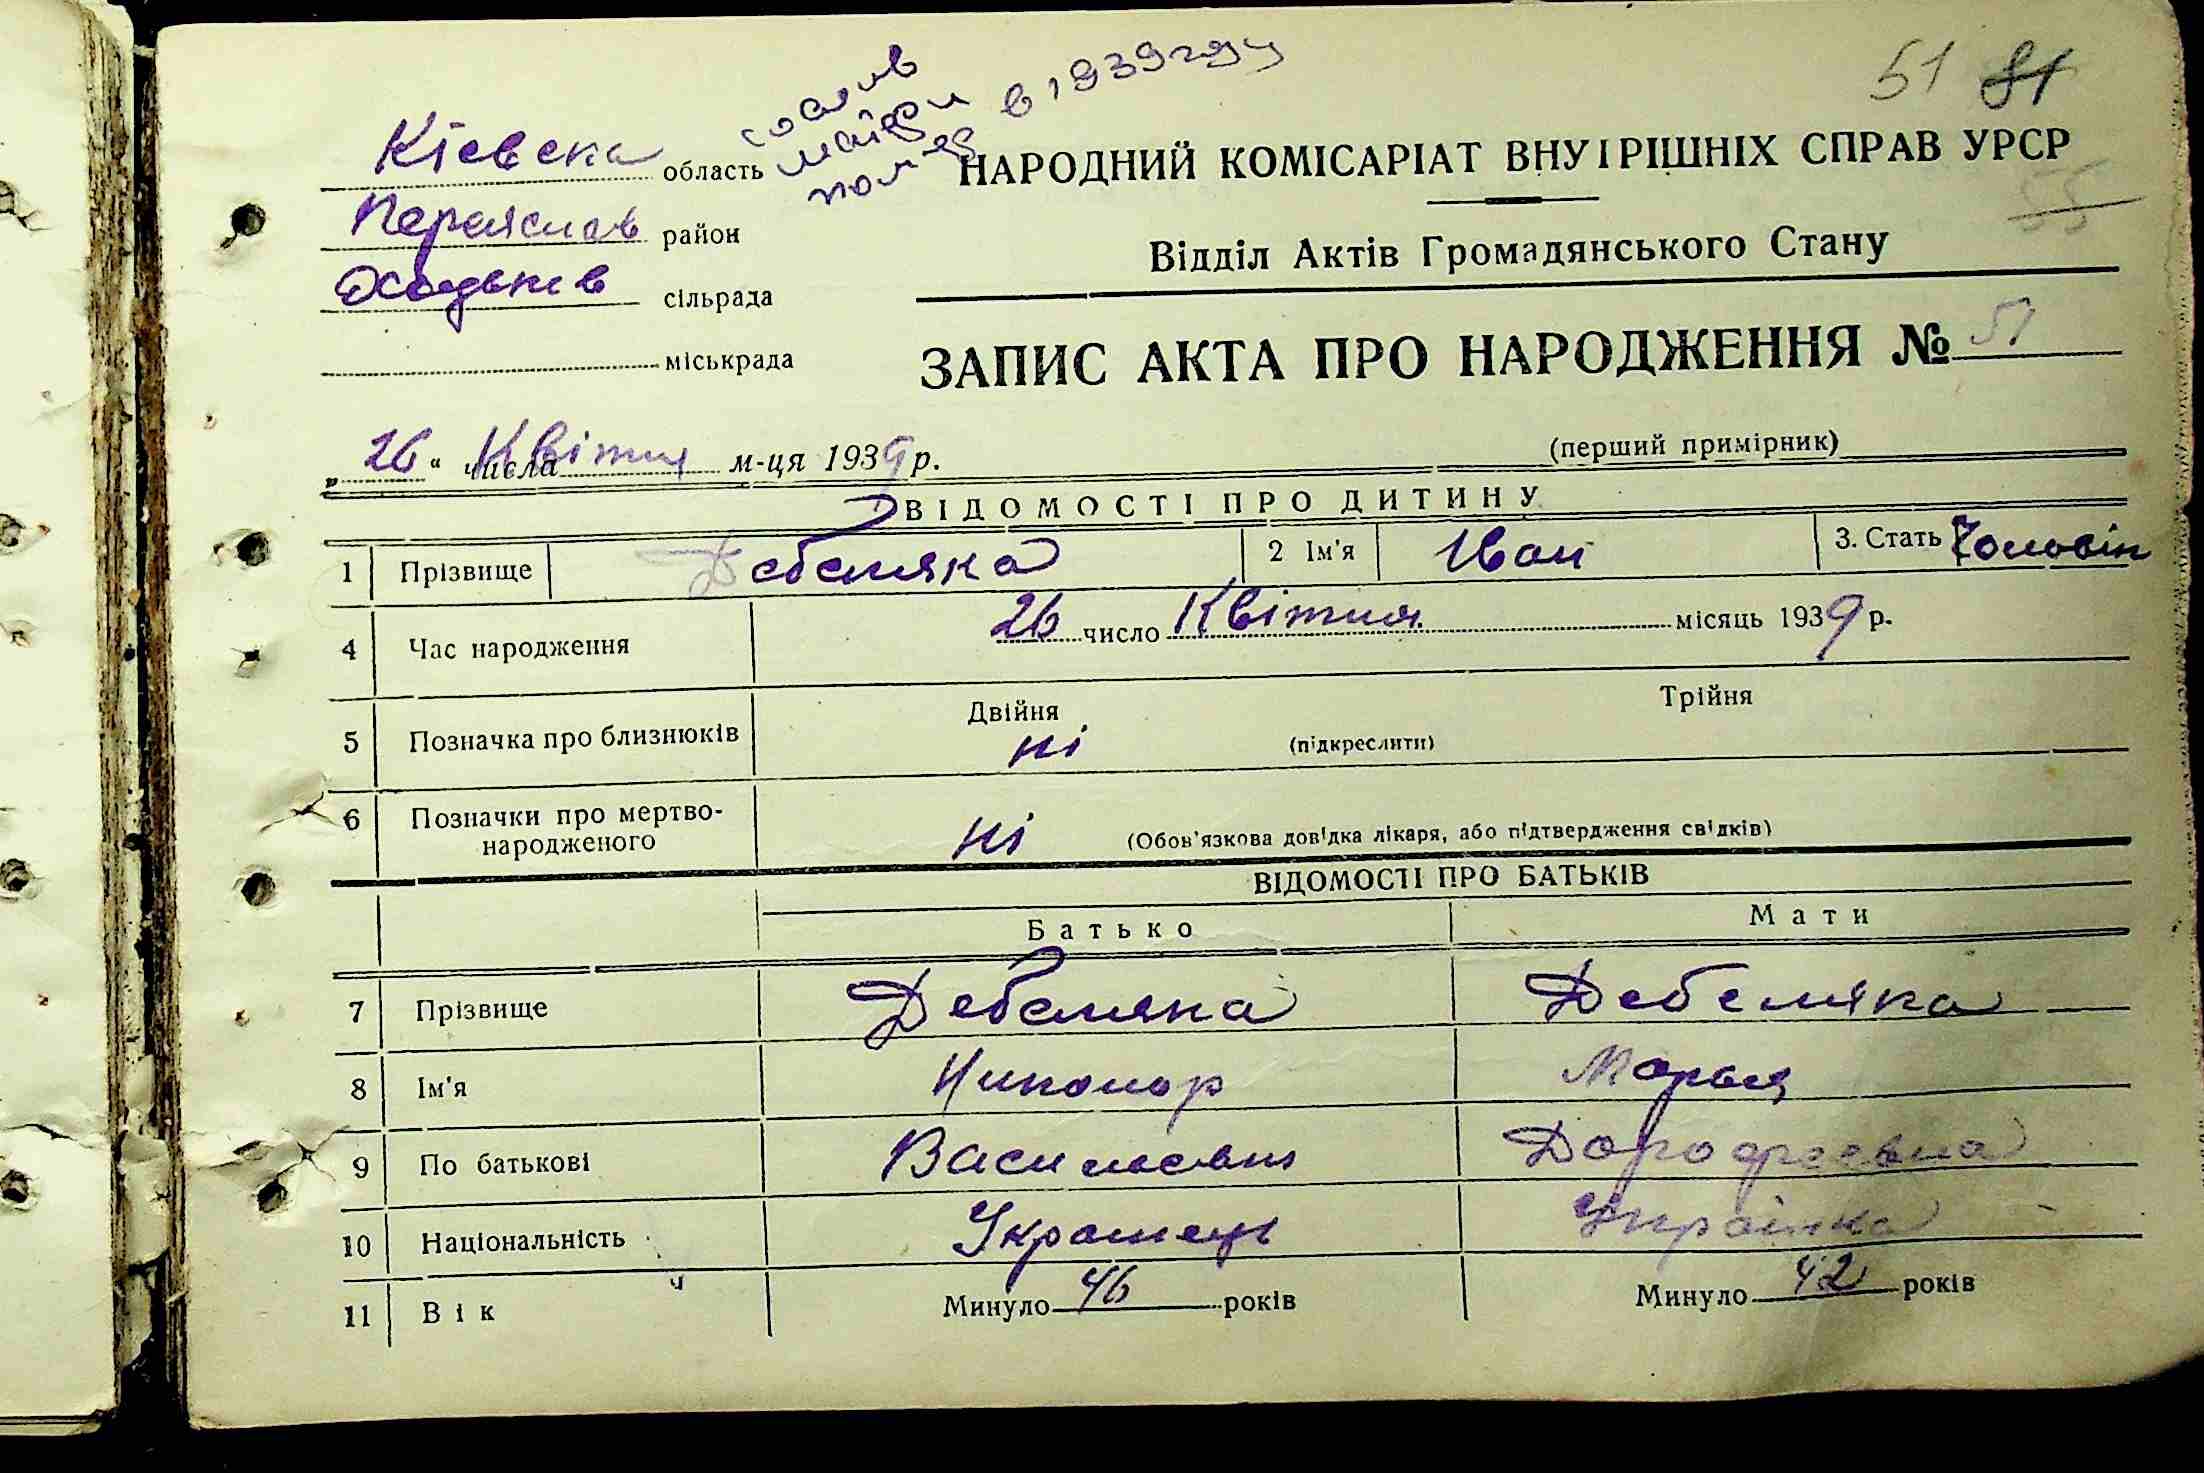 51 81
в 1939 году
помер
Кієвска область
НАРОДНИЙ КОМІСАРІАТ ВНУТРІШНІХ СПРАВ УРСР
55
Переяслав район
Відділ Актів Громадянського Стану
сільрада
міськрада
ЗАПИС АКТА ПРО НАРОДЖЕННЯ № 51
„26“ числа Квітня м-ця 1939 р.
(перший примірник)
ВІДОМОСТІ ПРО ДИТИНУ
1 Прізвище Дебеляка 2 Ім'я Іван 3. Стать Чоловін
4 Час народження 26 число Квітня місяць 1939 р.
5 Позначка про близнюків Двійня ні (підкреслити) Трійня
6 Позначки про мертво-
народженого ні (Обов'язкова довідка лікаря, або підтвердження свідків)
ВІДОМОСТІ ПРО БАТЬКІВ
Батько Мати
7 Прізвище Дебеляка Дебеляка
8 Ім'я Никонор Марья
9 По батькові Васильевич Дорофеевна
10 Національність Украінець Украінка
11 Вік Минуло 46 років Минуло 42 років